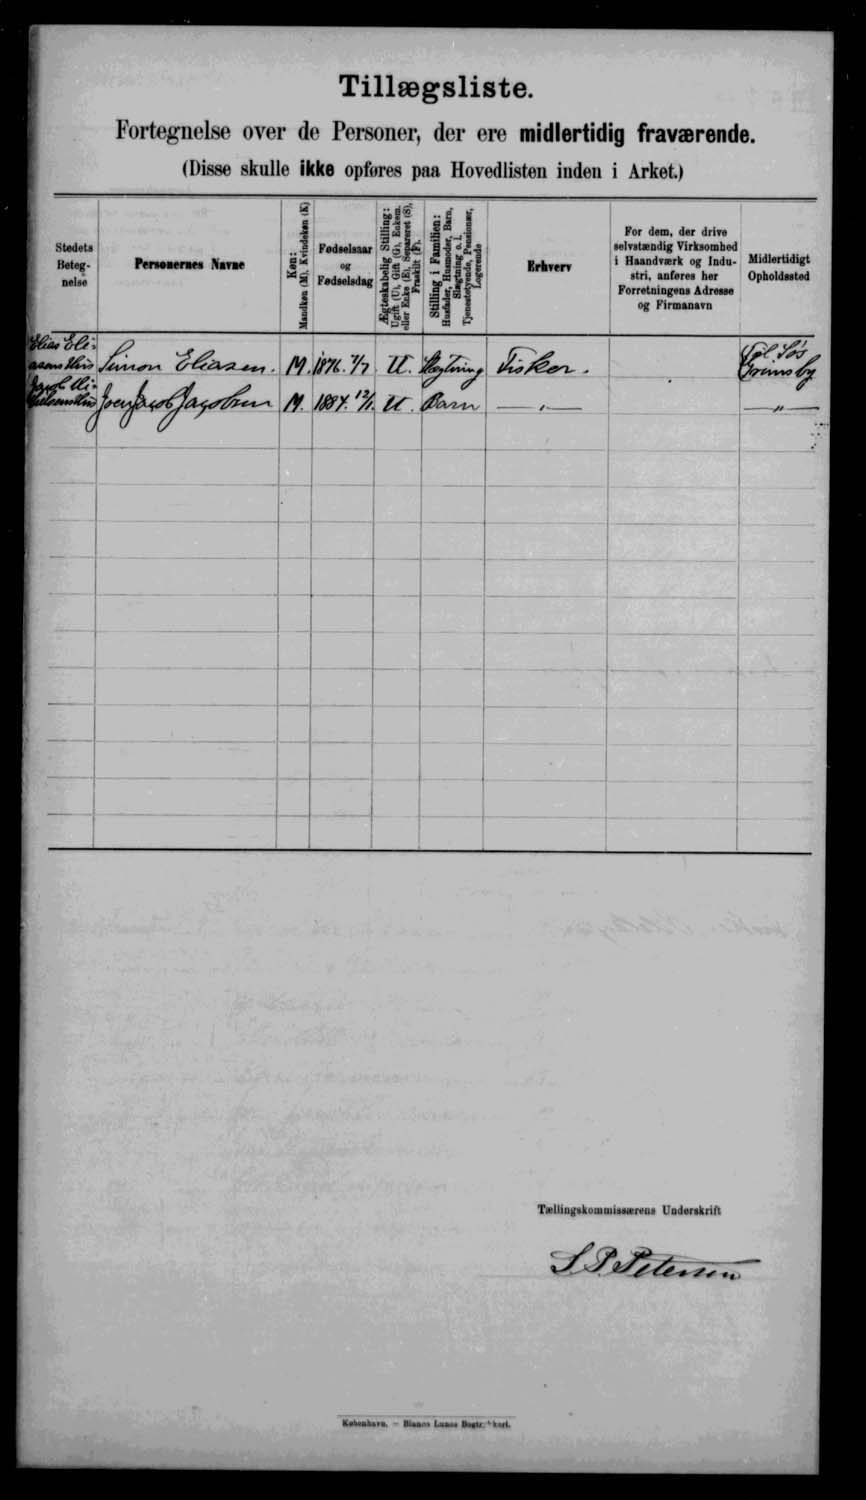 Tillægsliste.
Fortegnelse over de Personer, der ere midlertidig fraværende.
(Disse skulle ikke opføres paa Hovedlisten inden i Arket.)
Stedets Betegnelse
Personernes Navne
Køn:
Mandkøn (M), Kvindekøn (K)
Fødselsaar
og
Fødselsdag
Ægteskabelig Stilling:
Ugift (U), Gift (G), Enkem.
eller Enke (E), Separeret (S),
Fraskilt (F).
Stilling i Familien:
Husfader, Husmoder, Barn,
Slægtning o. l.
Tjenestetyende, Pensionær,
Logerende
Erhverv
For dem, der drive
selvstændig Virksomhed
i Haandværk og Indu-
stri, anføres her
Forretningens Adresse
og Firmanavn
Midlertidigt
Opholdssted
Elias Eli-
asens Hus Simon Eliasen. M. 1876. 7/7 U. Slægtning Fisker. Til Søs Grimsby
Jacob Hus Joen Jacob Jacobsen M. 1884. 12/1. U. Barn — „ — — „ —
Tællingskommissærens Underskrift
S. P. Petersen
København. — Bianco Lunos Bogtr.